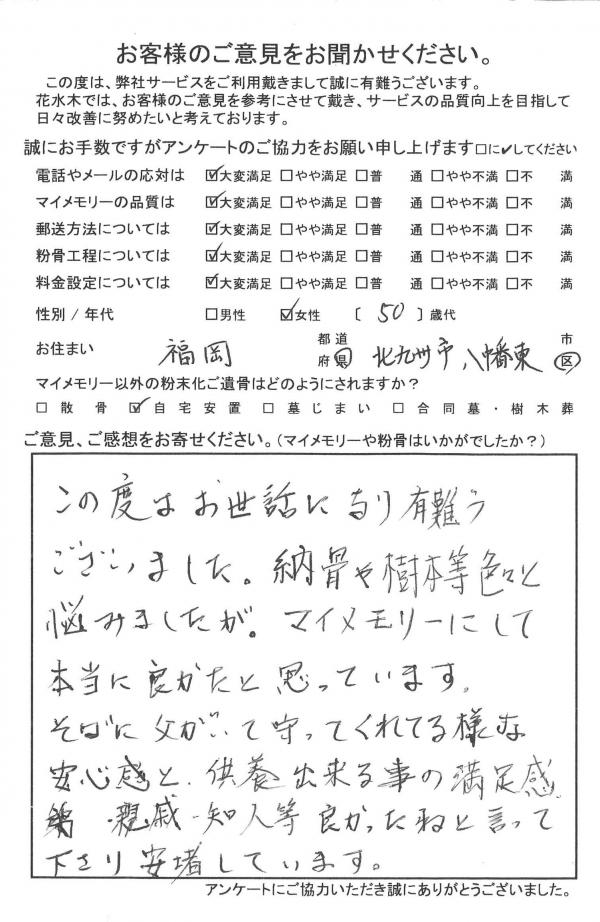 お客様のご意見をお聞かせください。
この度は、弊社サービスをご利用戴きまして誠に有難うございます。
花水木では、お客様のご意見を参考にさせて戴き、サービスの品質向上を目指して
日々改善に努めたいと考えております。
誠にお手数ですがアンケートのご協力をお願い申し上げます□に✔してください
電話やメールの応対は ☑大変満足 □やや満足 □普 通 □やや不満 □不 満
マイメモリーの品質は ☑大変満足 □やや満足 □普 通 □やや不満 □不 満
郵送方法については ☑大変満足 □やや満足 □普 通 □やや不満 □不 満
粉骨工程については ☑大変満足 □やや満足 □普 通 □やや不満 □不 満
料金設定については ☑大変満足 □やや満足 □普 通 □やや不満 □不 満
性別/年代 □男性 ☑女性 〔 50 〕歳代
お住まい 福岡 都道府県 北九州市八幡東 市区
マイメモリー以外の粉末化ご遺骨はどのようにされますか?
□散骨 ☑自宅安置 □墓じまい □合同墓・樹木葬
ご意見、ご感想をお寄せください。(マイメモリーや粉骨はいかがでしたか?)
この度はお世話になり有難う
ございました。納骨や樹木等色々と
悩みましたが。マイメモリーにして
本当に良かたと思っています。
そばに父がいて守ってくれてる様な
安心感と、供養出来る事の満足感。
親戚・知人等良かったねと言って
下さり安堵しています。
アンケートにご協力いただき誠にありがとうございました。